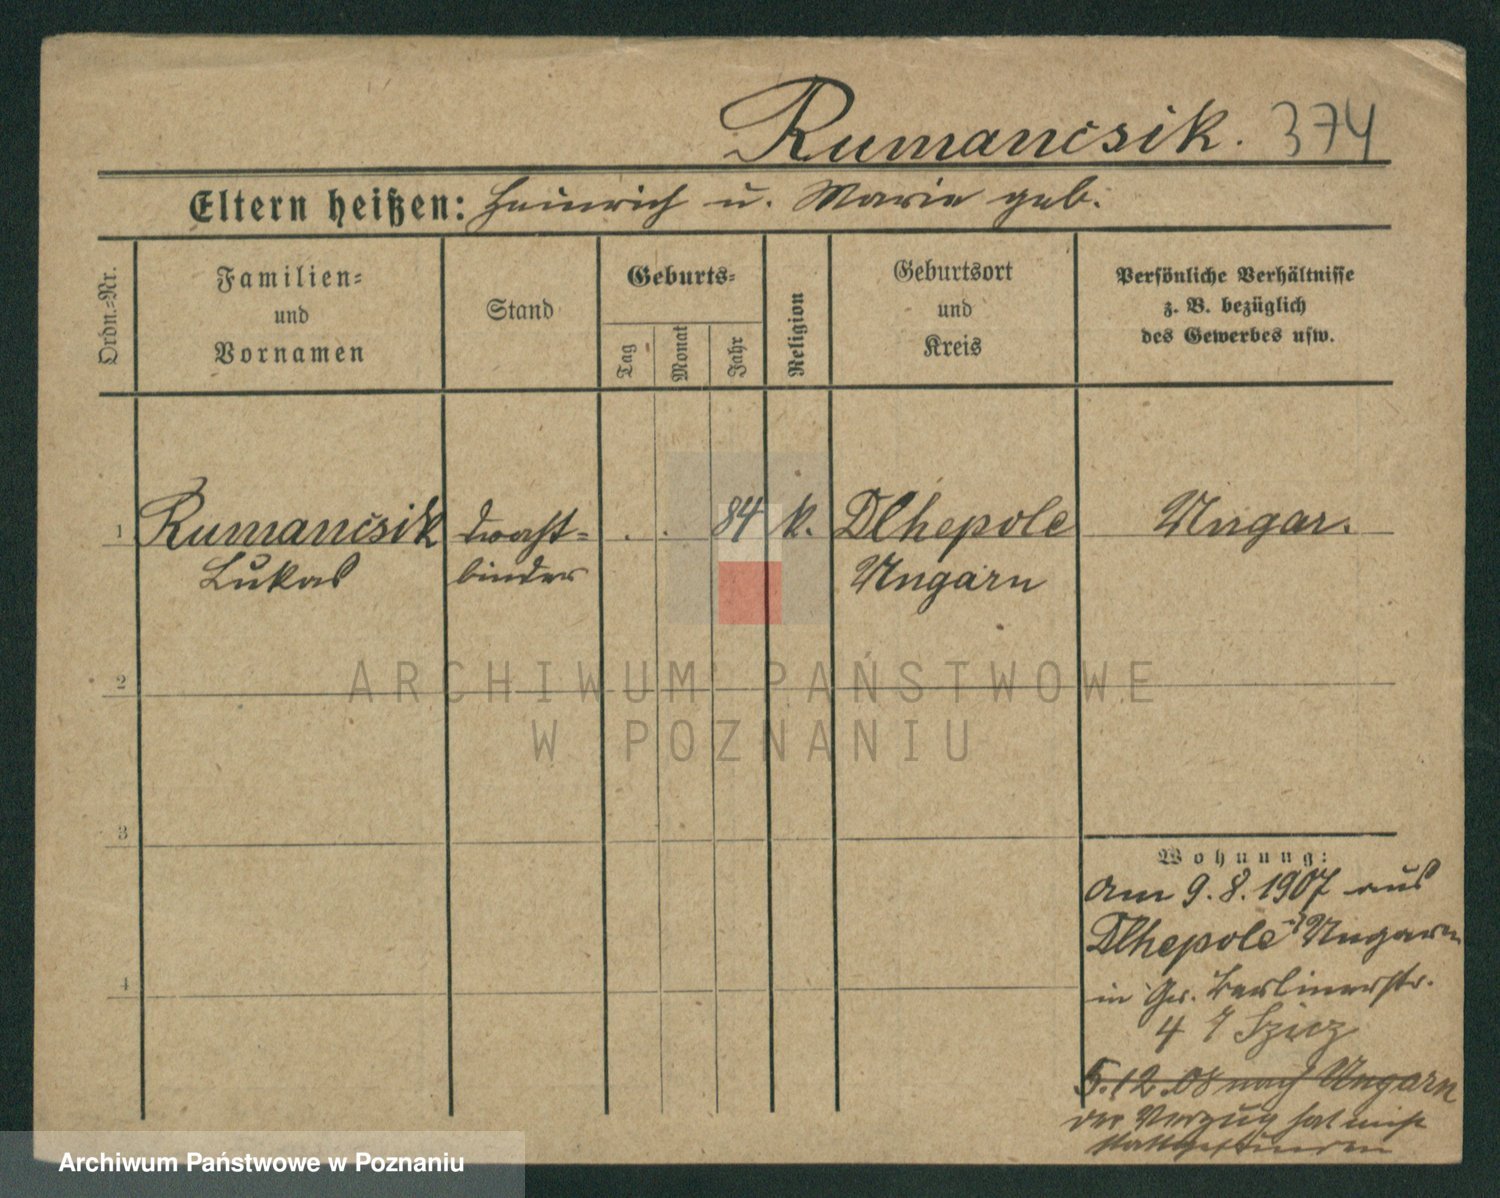 Rumancsik. 374
Eltern heißen: Heinrich u. Marie geb.
Ordn.-Nr.
Familien-
und
Vornamen
Stand
Geburts-
Tag
Monat
Jahr
Religion
Geburtsort
und
Kreis
Persönliche Verhältnisse
z. B. bezüglich
des Gewerbes usw.
1 Rumancsik Draht- . . 84 k. Dlhepole Ungar.
Lukas binder Ungarn
2
ARCHIWUM PAŃSTWOWE
W POZNANIU
3
Wohnung:
am 9.8.1907 aus
Dlhepole Ungarn
4
in Gr. Berlinerstr.
4
5.12.08 nach Ungarn
der Verzug hat nicht
stattgefunden
Archiwum Państwowe w Poznaniu